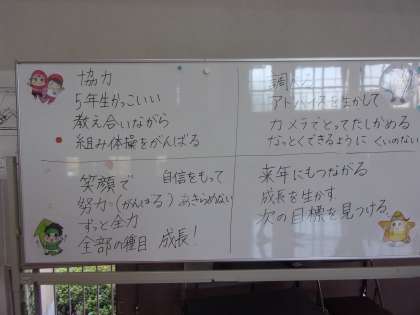 協力
5年生かっこいい
教え合いながら
組み体操をがんばる
調べ
アドバイスを生かして
カメラでとってたしかめる
なっとくできるように くいのない
笑顔で 自信をもって
努力(がんばる) あきらめない
ずっと全力
全部の種目 成長!
来年にもつながる
成長を生かす
次の目標を見つける